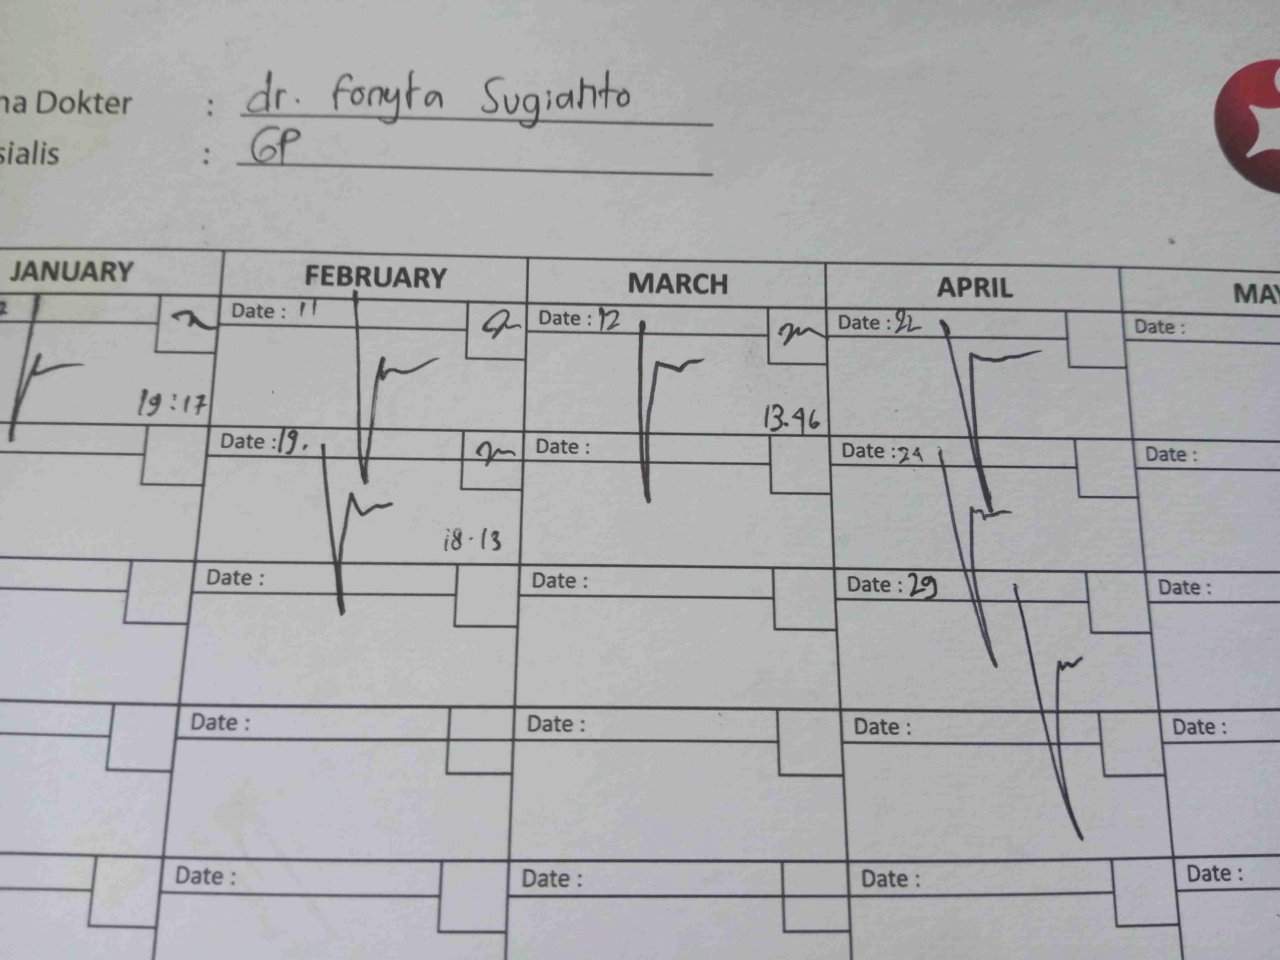 na Dokter : dr. Fonyta Sugianto
sialis : GP
JANUARY FEBRUARY MARCH APRIL MAY
Date : 11 Date : 12 Date : 22 Date :
19:17 13.46
Date : 19. Date : Date : 24 Date :
18.13
Date : Date : Date : 29 Date :
Date : Date : Date : Date :
Date : Date : Date : Date :